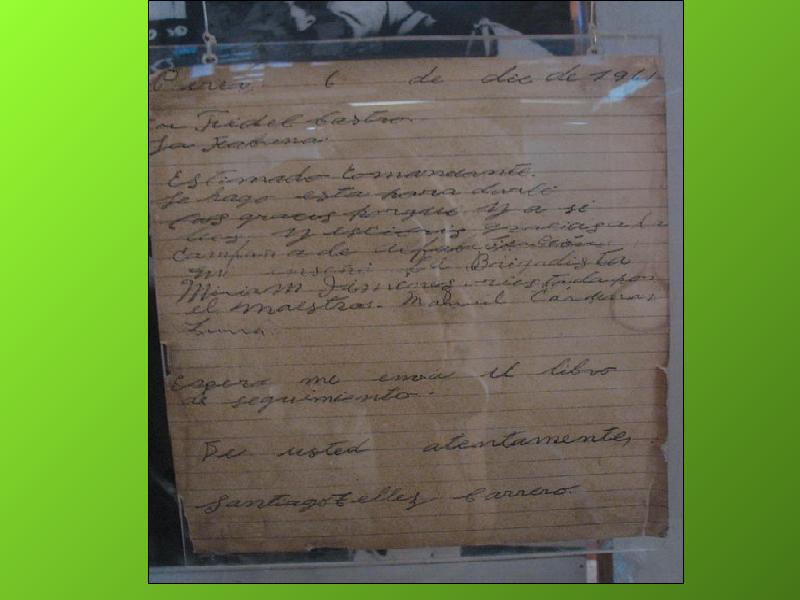 6 de dic de 1961
Fidel Castro
La Habana
Estimado Comandante.
Le hago esta para darle
las gracias porque ya se
leer y escribir gracias a la
Campaña de alfabetización
me enseñó la Brigadista
Miriam Jimenes orientada por
el maestro. Manuel Cárdenas
Luna.
Espero me envie el libro
de seguimiento.
De usted atentamente,
Santiago Tellez Carrero